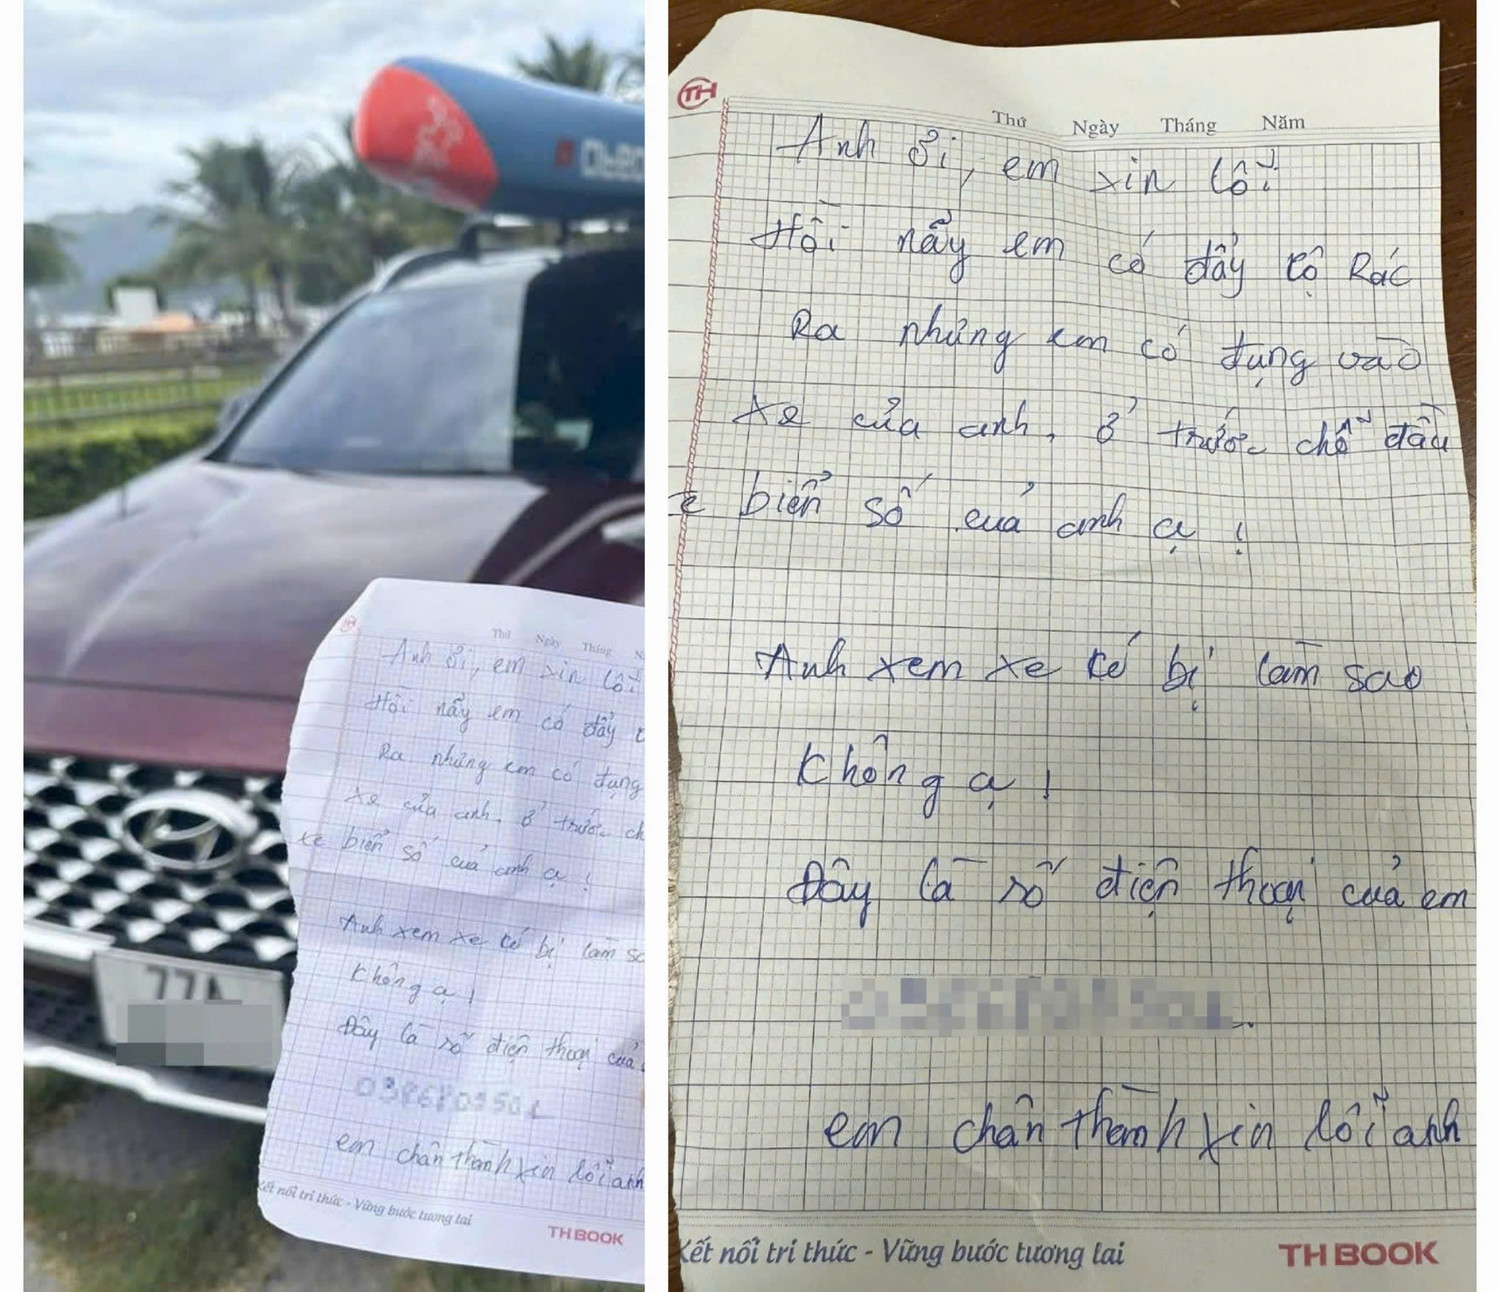 Obeo
Thứ Ngày Tháng
Anh ơi, em xin lỗi
Hồi nẩy em có đẩy
Ra nhưng em có đụng
xe của anh. ở trước ch
xe biển số của anh ạ !
Anh xem xe có bị làm sa
Không ạ !
Đây là số điện thoại của
em chân thành xin lỗi anh
Kết nối tri thức - Vững bước tương lai
TH BOOK
77A
TH
Thứ Ngày Tháng Năm
Anh ơi, em xin lỗi
Hồi nẩy em có đẩy cộ Rác
Ra nhưng em có đụng vào
xe của anh. ở trước chỗ đầu
e biển số của anh ạ !
Anh xem xe có bị làm sao
Không ạ !
Đây là số điện thoại của em
em chân thành xin lỗi anh
Kết nối tri thức - Vững bước tương lai
TH BOOK